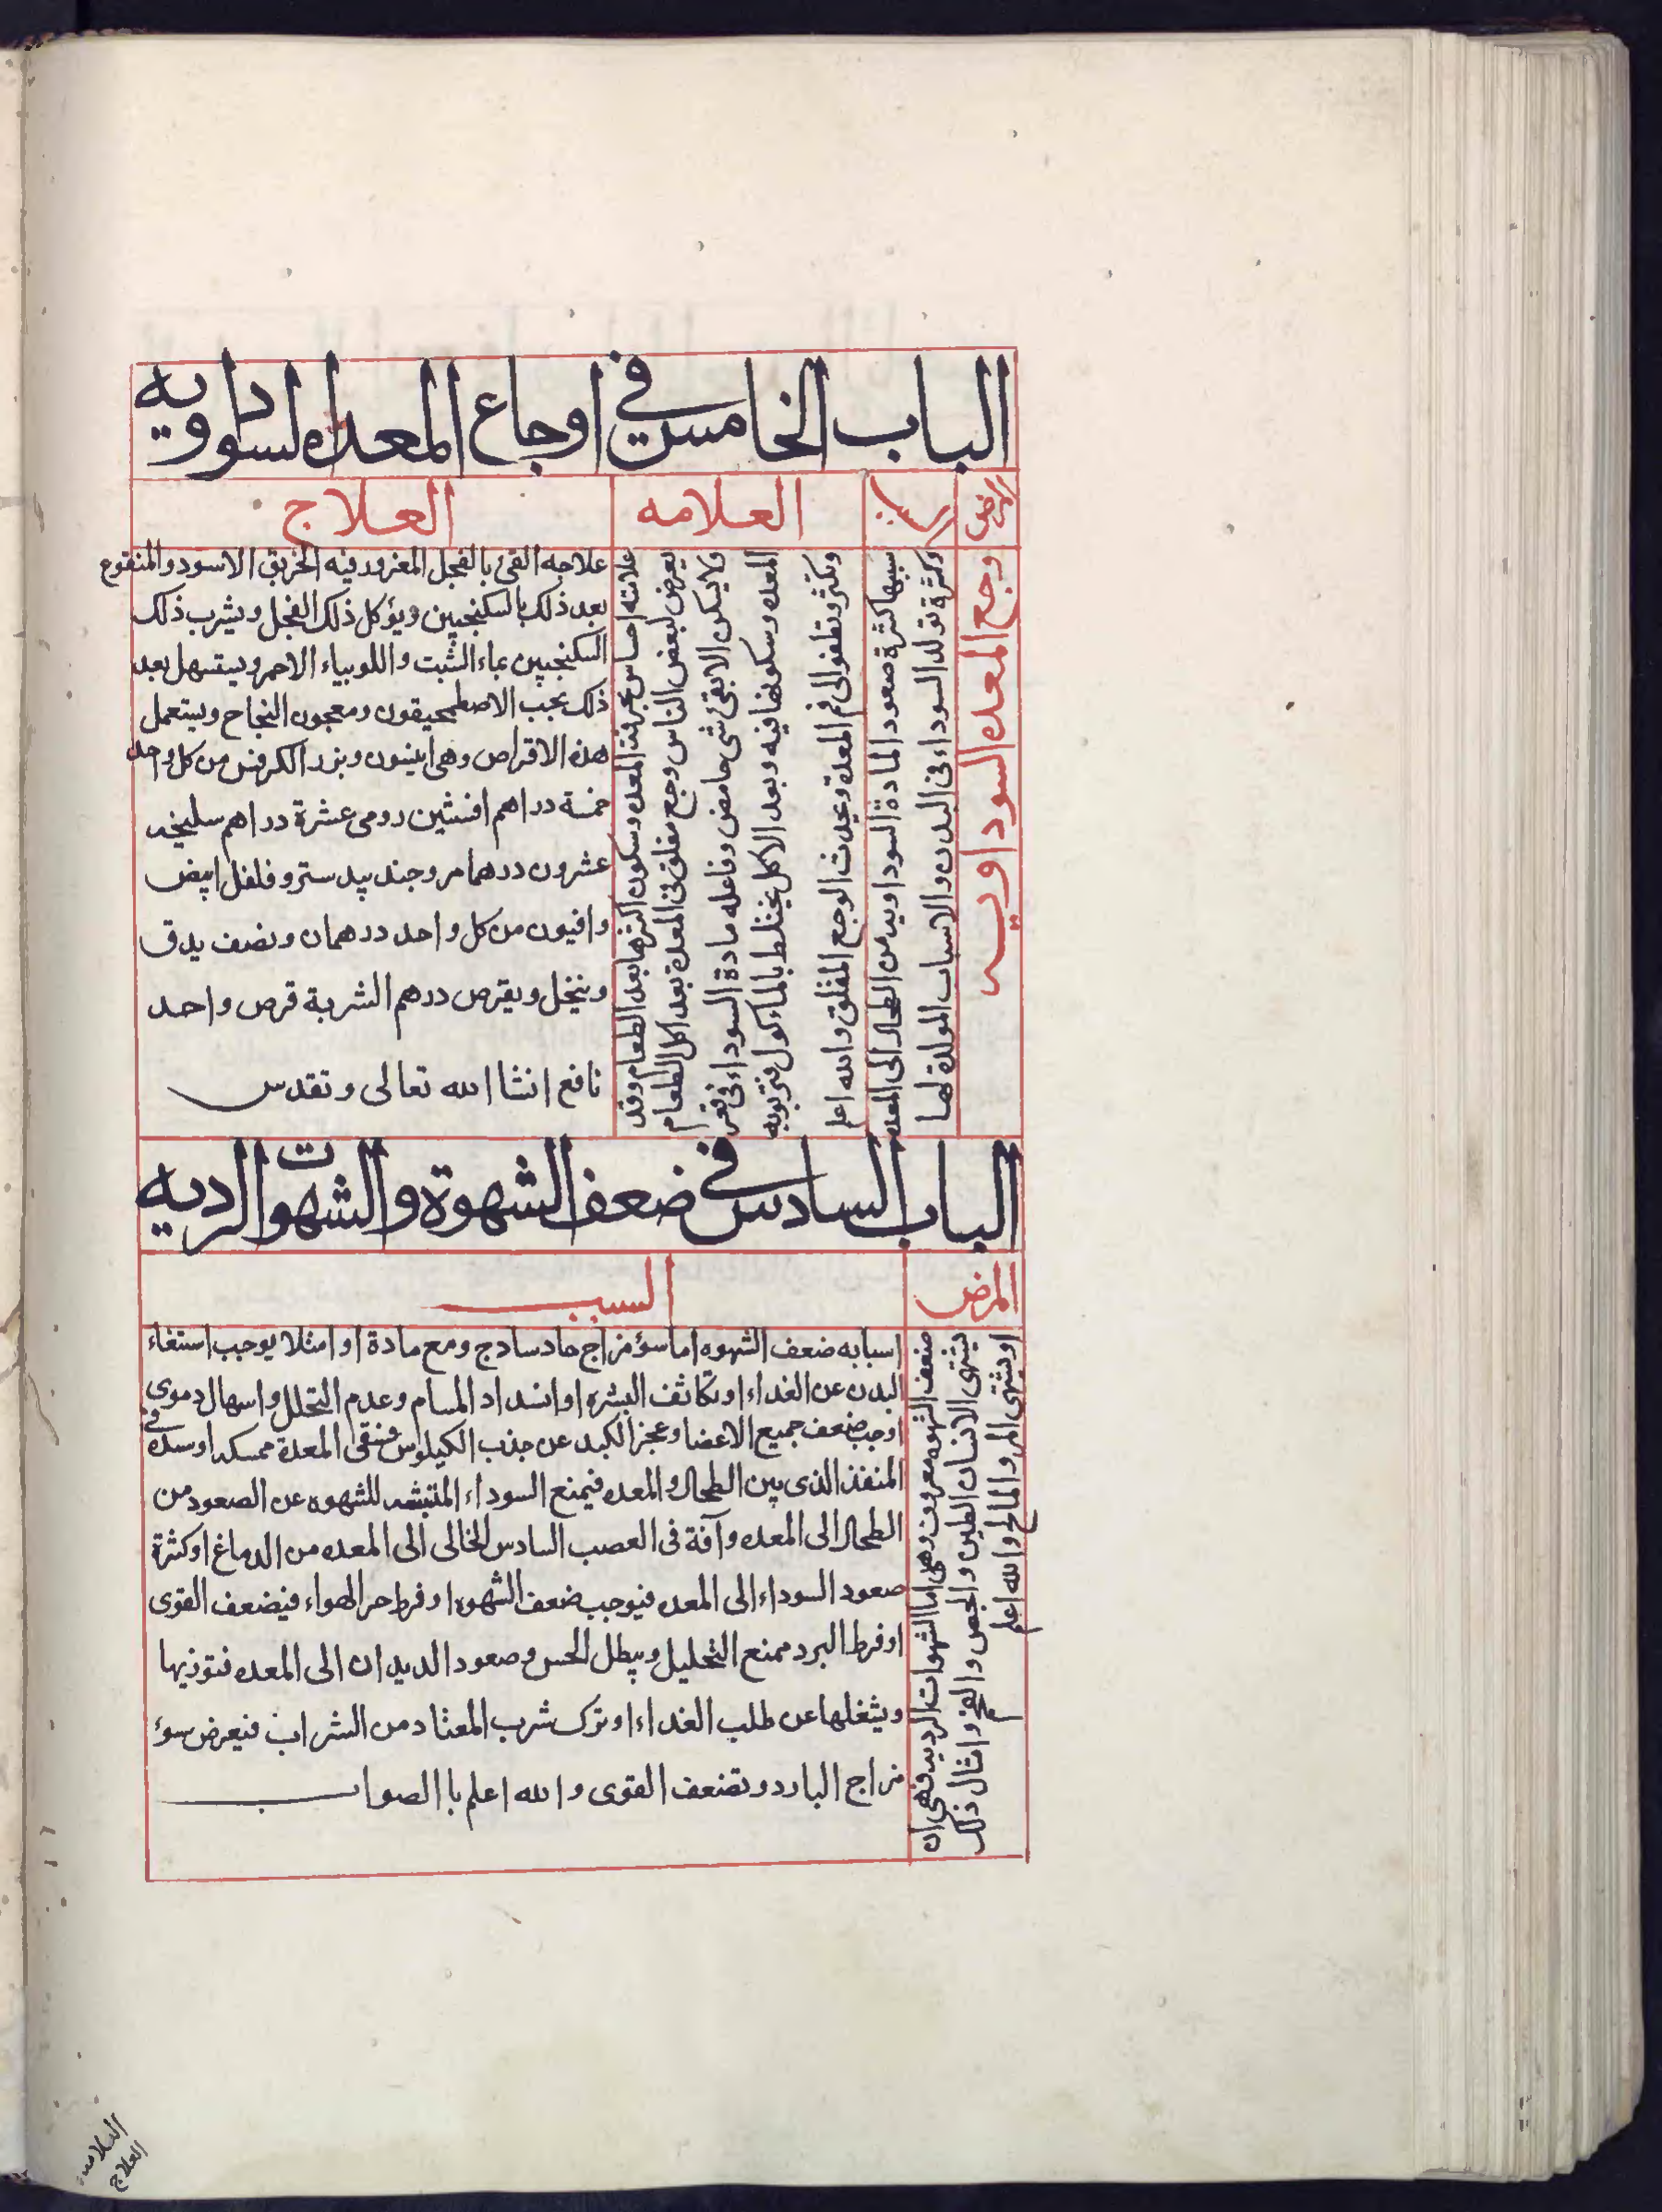 الباب الخامس في اوجاع المعده السوداويه
المرض
السبب
العلامه
العلاج
وجع المعده السوداويه
سببها كثرة صعود المادة السوداويه من الطحال الى المعده
وكثرة تولد السوداء فى البدن والاسباب المولدة لها
علامته احساس بحرقة المعده وسكون اكثرها بعد الطعام وقد
يعرض لبعض الناس وجع مقلق فى المعدة بعد اكل الطعام
ولا يسكن الا بقئ شى حامض وفاعله مادة السوداء فى قعر
المعده وسكونها فيه وبعد الاكل يختلط بالماءكول فتربو به
وتكثر وتطفو الى فم المعدة ويحدث الوجع المقلق والله اعلم
علاجه القئ بالفجل المغرود فيه الخربق الاسود والمنقوع
بعد ذلك بالسكنجبين ويؤكل ذلك الفجل ويشرب ذلك
السكنجبين بماء الشبت واللوبياء الاحمر ويستسهل بعد
ذلك بحب الاصطمحيقون ومعجون النجاح ويستعمل
هذه الاقراص وهى انيسون وبزر الكرفس من كل واحد
خمسة دراهم افسنتين رومى عشرة دراهم سليخه
عشرون درهما مر وجند بيد ستر وفلفل ابيض
وافيون من كل واحد درهمان ونصف يدق
وينخل ويقرص درهم الشربة قرص واحد
نافع انشا الله تعالى وتقدس
الباب السادس في ضعف الشهوة والشهوات الرديه
المرض
السبب
ضعف الشهوه معروف وهى اما الشهوات الرديه فهى ان
يشتهى الانسان الطين والجص والفحم وامثال ذلك
او يشتهى المر والمالح والله اعلم
اسبابه ضعف الشهوه اما سؤ مزاج حاد سادج ومع مادة او امتلا يوجب استغناء
البدن عن الغداء او تكاثف البشره او انسداد المسام وعدم التحلل واسهال دموى
اوجب ضعف جميع الاعضا وعجز الكبد عن جذب الكيلوس فتبقى المعدة ممسكه او سده في
المنفذ الذى بين الطحال والمعده فيمنع السوداء المنبثه للشهوه عن الصعود من
الطحال الى المعده وآفة فى العصب السادس الخالى الى المعده من الدماغ او كثرة
صعود السوداء الى المعده فيوجب ضعف الشهوه او فرط حر الهواء فيضعف القوى
او فرط البرد ممنع التحليل ويبطل الحس وصعود الديدان الى المعده فتوذيها
ويشغلها عن طلب الغداء او ترك شرب المعتاد من الشراب فيعرض سوء
مزاج البارد وتضعف القوى والله اعلم باالصواب
العلامه
العلاج